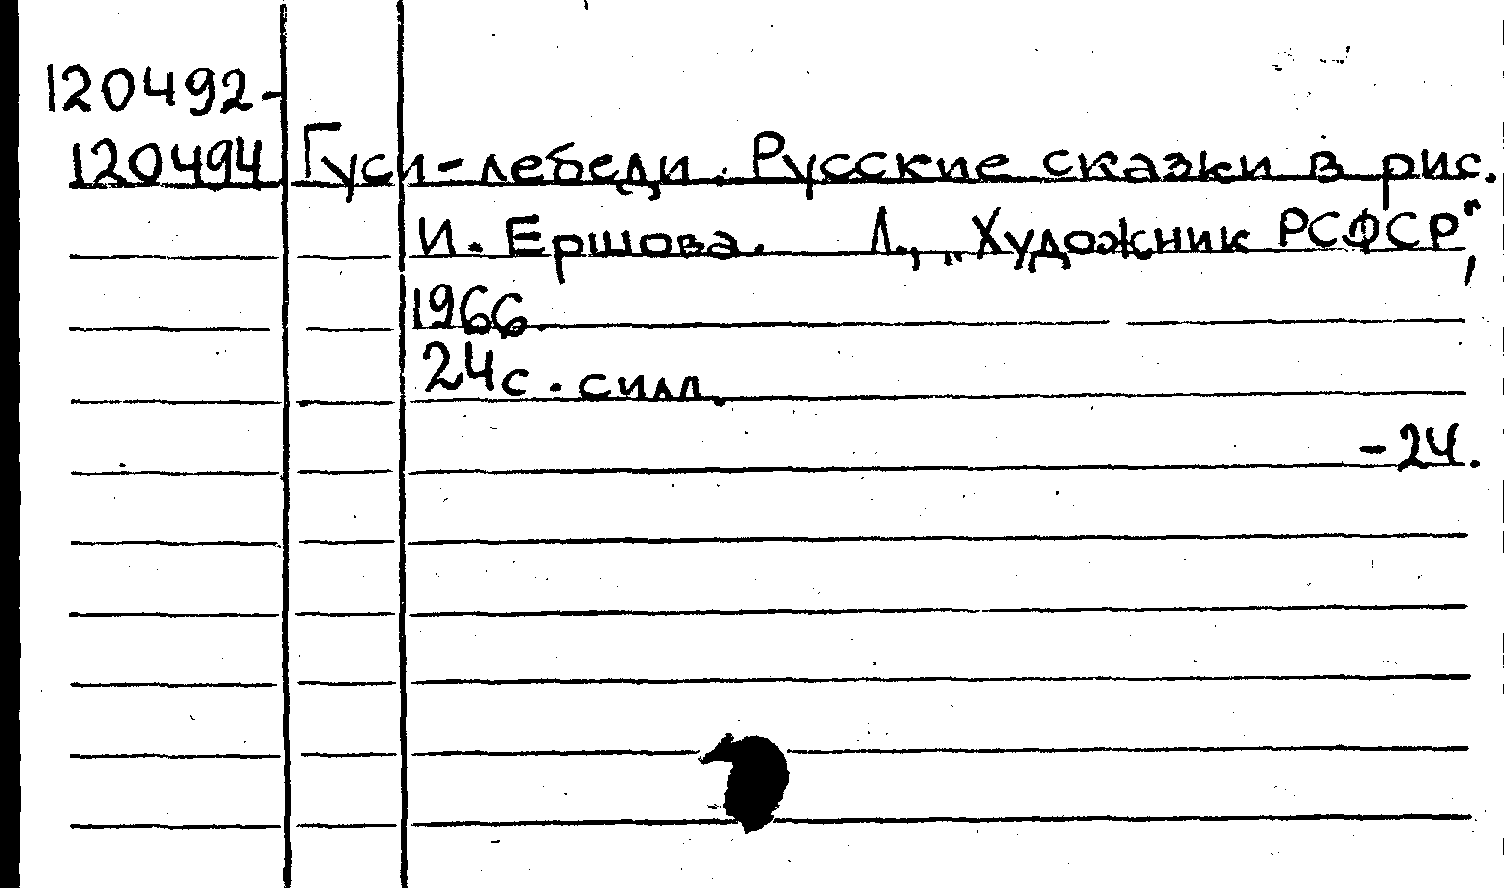 120492-
120494 Гуси-лебеди. Русские сказки в рис.
И. Ершова. Л., „Художник РСФСР",
1966.
24с. силл.
-24.